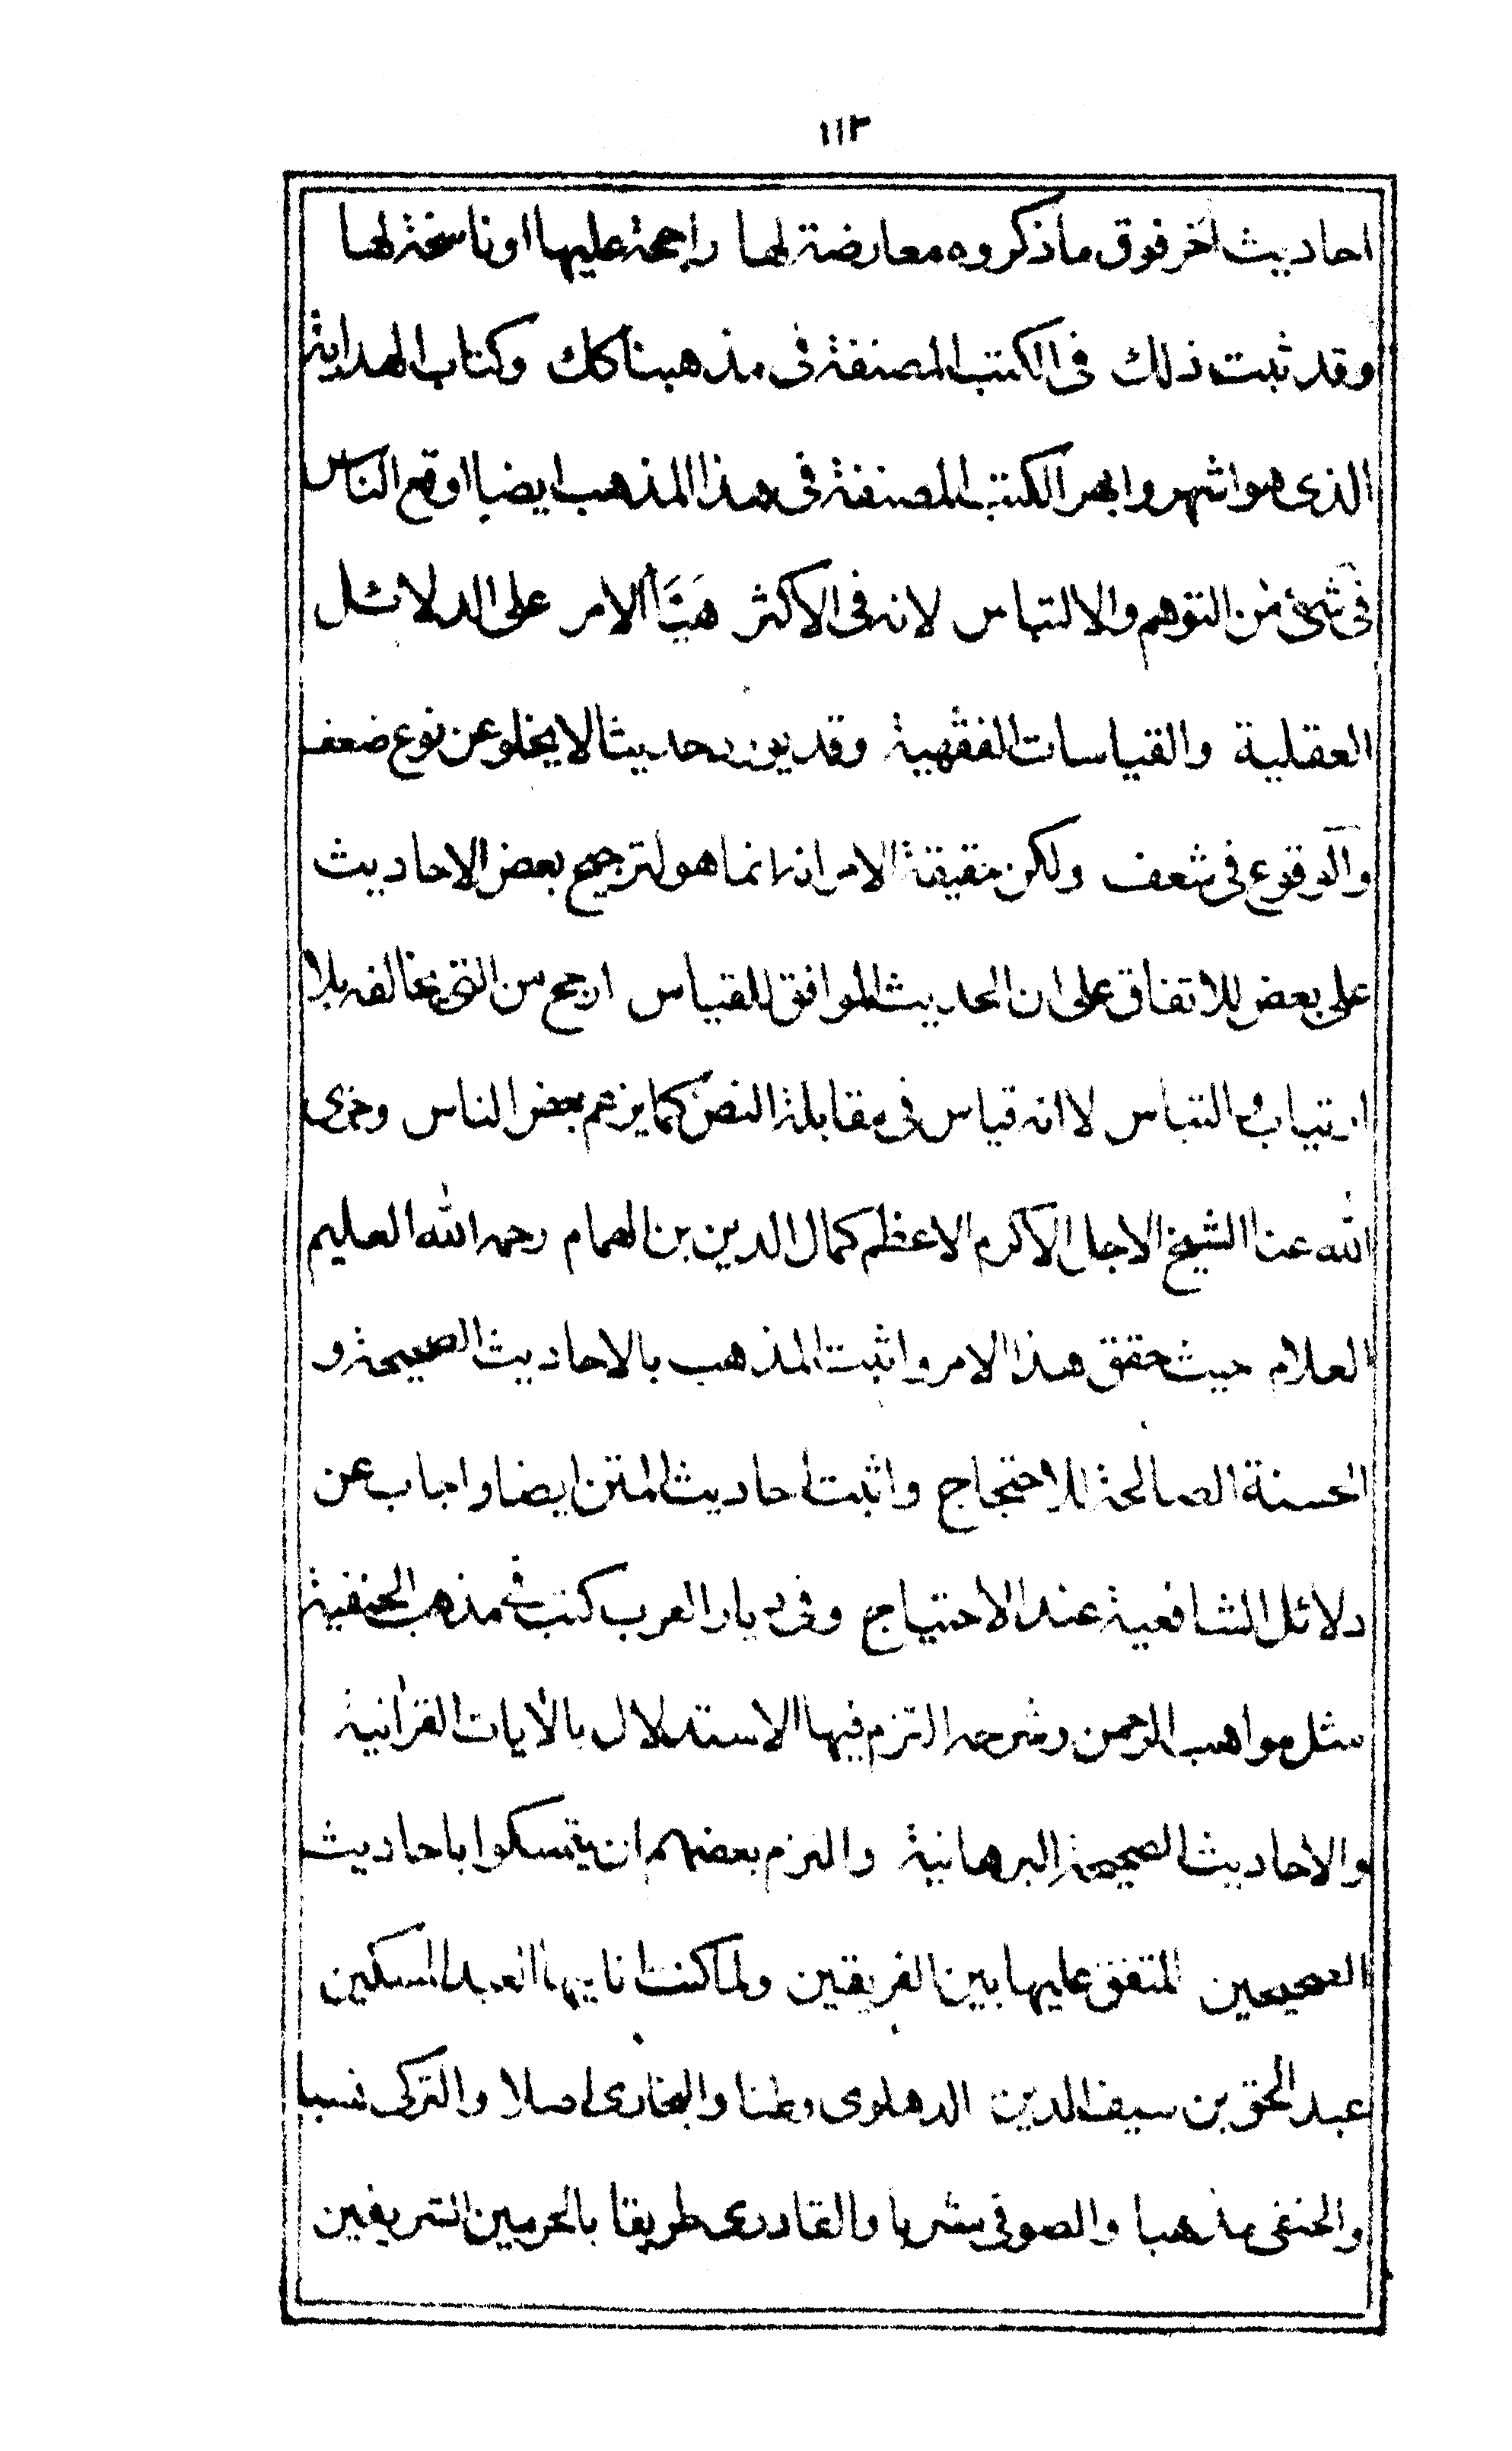 ١١٣
احاديث اُخر فوق ما ذكروه معارضة لها راجحة عليها او ناسخة لها
وقد ثبت ذلك فى الكتب المصنفة فى مذهبنا كلك وكتاب الهداية
الذى هو اشهر وابهر الكتب المصنفة فى هذا المذهب ايضا اوقع الناس
فى شئ من التوهم والالتباس لانه فى الاكثر هَيَّأ الامر على الدلائل
العقلية والقياسات الفقهية وقد يورد حديثا لا يخلو عن نوع ضعف
والوقوع فى شعف ولكن حقيقة الامر انه انما هو لترجيح بعض الاحاديث
على بعض للاتفاق على ان الحديث الموافق للقياس ارجح من التى يخالفه بلا
ارتياب والتباس لا انه قياس فى مقابلة النص كما يزعم بعض الناس وجزى
الله عنا الشيخ الاجل الاكرم الاعظم كمال الدين بن الهمام رحمه الله العليم
العلام حيث حقق هذا الامر واثبت المذهب بالاحاديث الصحيحة و
الحسنة الصالحة للاحتجاج واثبت احاديث المتن ايضا واجاب عن
دلائل الشافعية عند الاحتياج وفى ديار العرب كتب فى مذهب الحنفية
مثل مواهب الرحمن وشرحه التزم فيها الاستدلال بالاٰيات القراٰنية
والاحاديث الصحيحة البرهانية والتزم بعضهم ان يتمسكوا باحاديث
الصحيحين المتفق عليها بين الفريقين ولما كنت انا ايها العبد المسكين
عبد الحق بن سيف الدين الدهلوى وطنا والبخارى اصلا والتركى نسبا
والحنفى مذهبا والصوفى مشربا والقادرى طريقا بالحرمين الشريفين